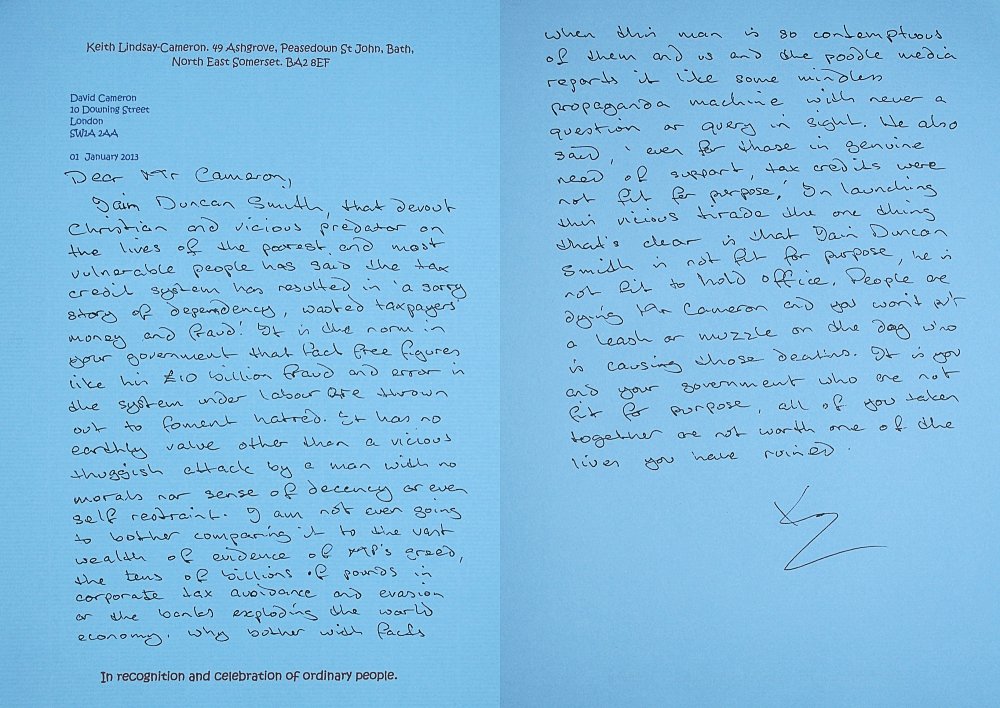 Keith Lindsay-Cameron. 49 Ashgrove, Peasedown St John, Bath,
North East Somerset. BA2 8EF
David Cameron
10 Downing Street
London
SW1A 2AA
01 January 2013
Dear Mr Cameron,
Iain Duncan Smith, that devout
Christian and vicious predator on
the lives of the poorest and most
vulnerable people has said the tax
credit system has resulted in 'a sorry
story of dependency, wasted taxpayers'
money and fraud.' It is the norm in
your government that fact free figures
like his £10 billion fraud and error in
the system under labour are thrown
out to foment hatred. It has no
earthly value other than a vicious
thuggish attack by a man with no
morals nor sense of decency or even
self restraint. I am not even going
to bother comparing it to the vast
wealth of evidence of MP's greed,
the tens of billions of pounds in
corporate tax avoidance and evasion
or the banks exploding the world
economy. Why bother with facts
In recognition and celebration of ordinary people.
when this man is so contemptuous
of them and us and the poodle media
reports it like some mindless
propaganda machine with never a
question or query in sight. He also
said, 'even for those in genuine
need of support, tax credits were
not fit for purpose.' In launching
this vicious tirade the one thing
that's clear is that Iain Duncan
Smith is not fit for purpose, he is
not fit to hold office. People are
dying Mr Cameron and you won't put
a leash or muzzle on the dog who
is causing those deaths. It is you
and your government who are not
fit for purpose, all of you taken
together are not worth one of the
lives you have ruined.